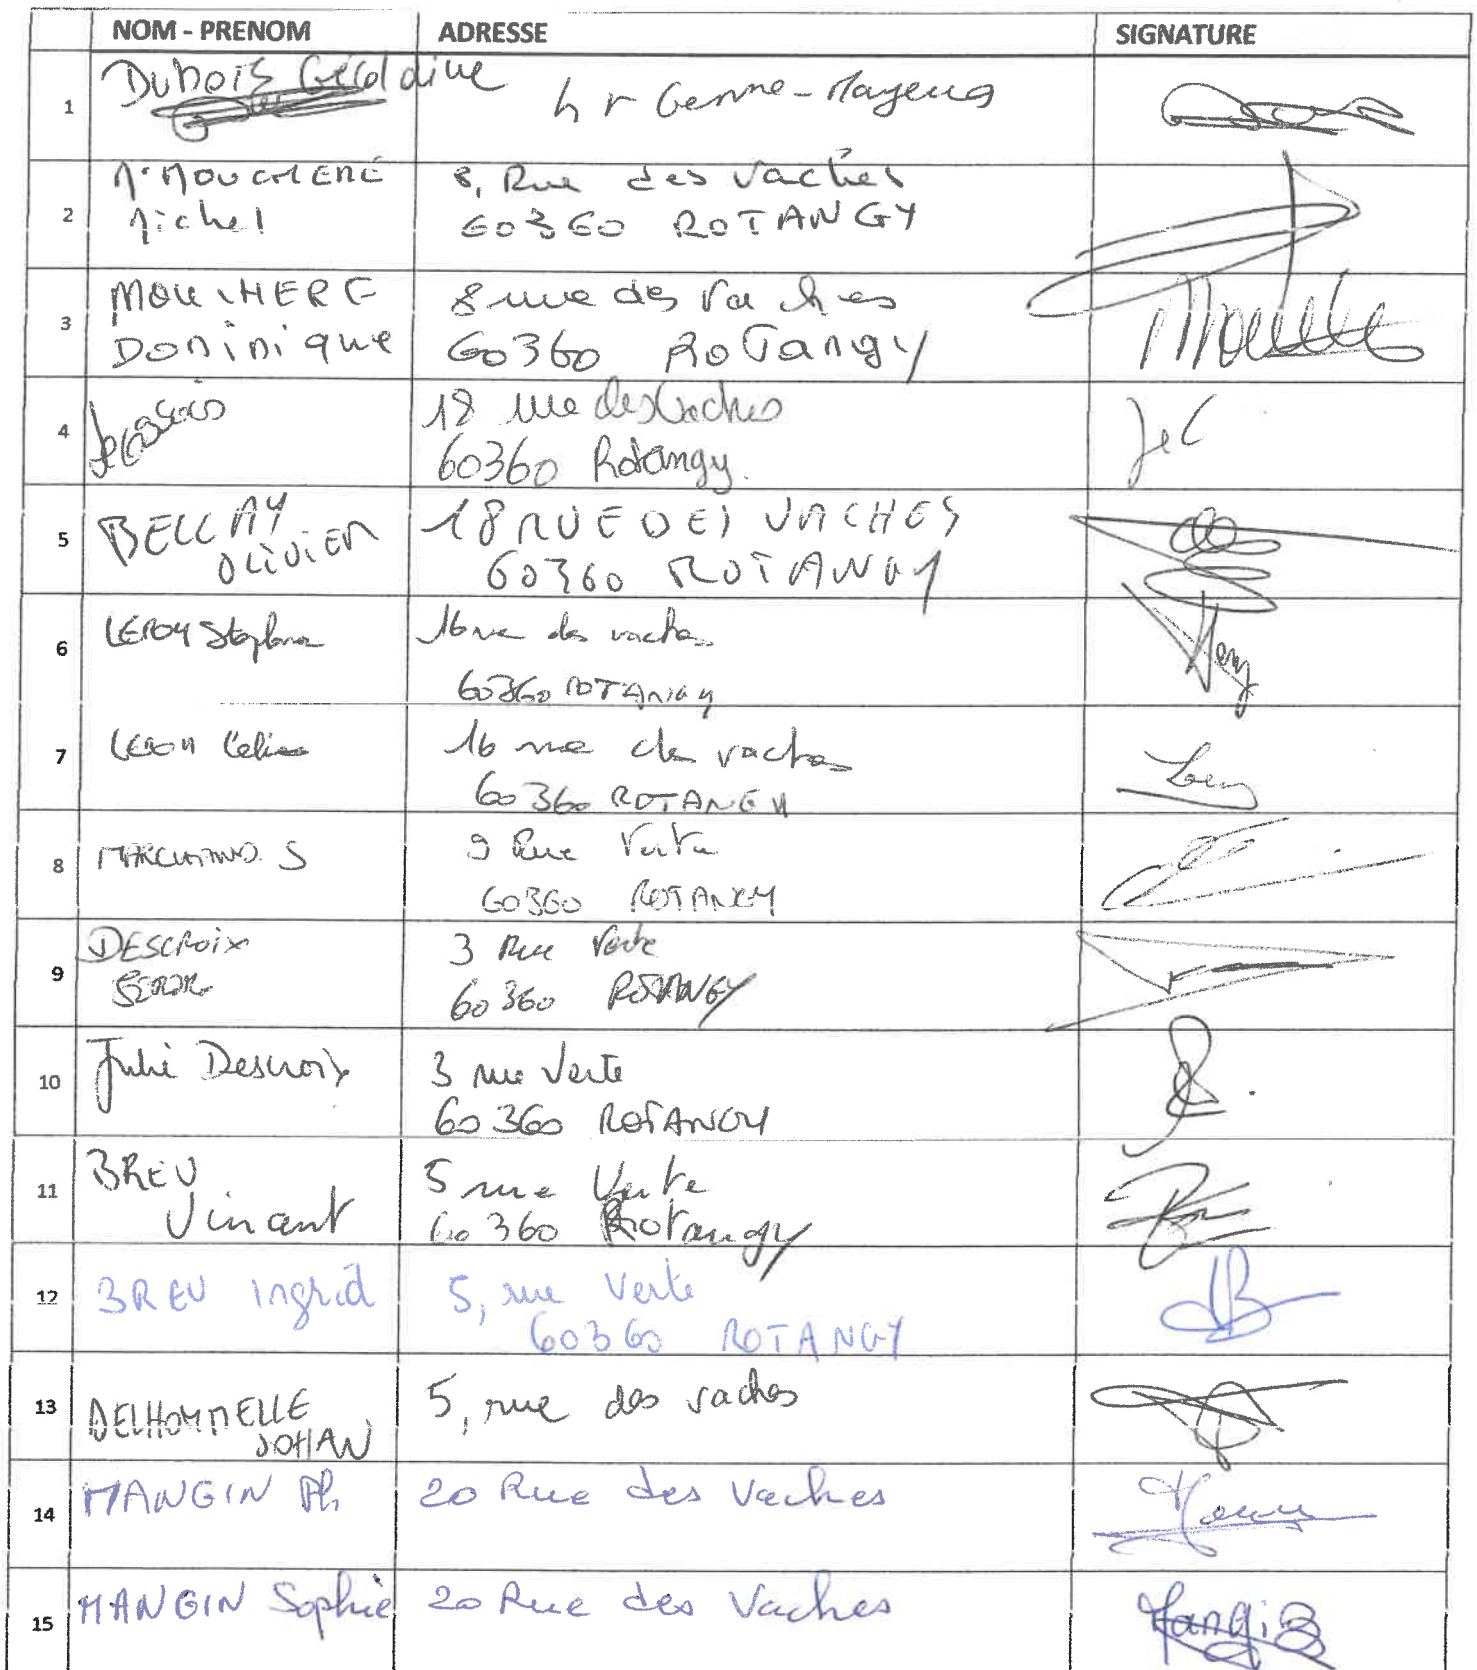 NOM - PRENOM ADRESSE SIGNATURE
1 Dubois Géraldine
2 8, Rue des Vaches
Michel 60360 ROTANGY
3 MOUCHERE 8 rue des Vaches
Dominique 60360 Rotangy
4 18 rue des Vaches
60360 Rotangy.
5 BELLAY 18 RUE DES VACHES
OLIVIER 60360 ROTANGY
6 LEROY Stéphane 16 rue des vaches
60360 ROTANGY
7 LEROY Céline 16 rue des vaches
60360 ROTANGY
8 MARCHAND S 9 Rue Verte
60360 ROTANGY
9 DESCROIX 3 Rue Verte
60360 ROTANGY
10 Julie Descroix 3 rue Verte
60360 ROTANGY
11 BREU 5 rue Verte
Vincent 60360 Rotangy
12 BREU Ingrid 5, rue Verte
60360 ROTANGY
13 DELHOMMELLE 5, rue des vaches
JOHAN
14 MANGIN Ph 20 Rue des Vaches
15 MANGIN Sophie 20 Rue des Vaches